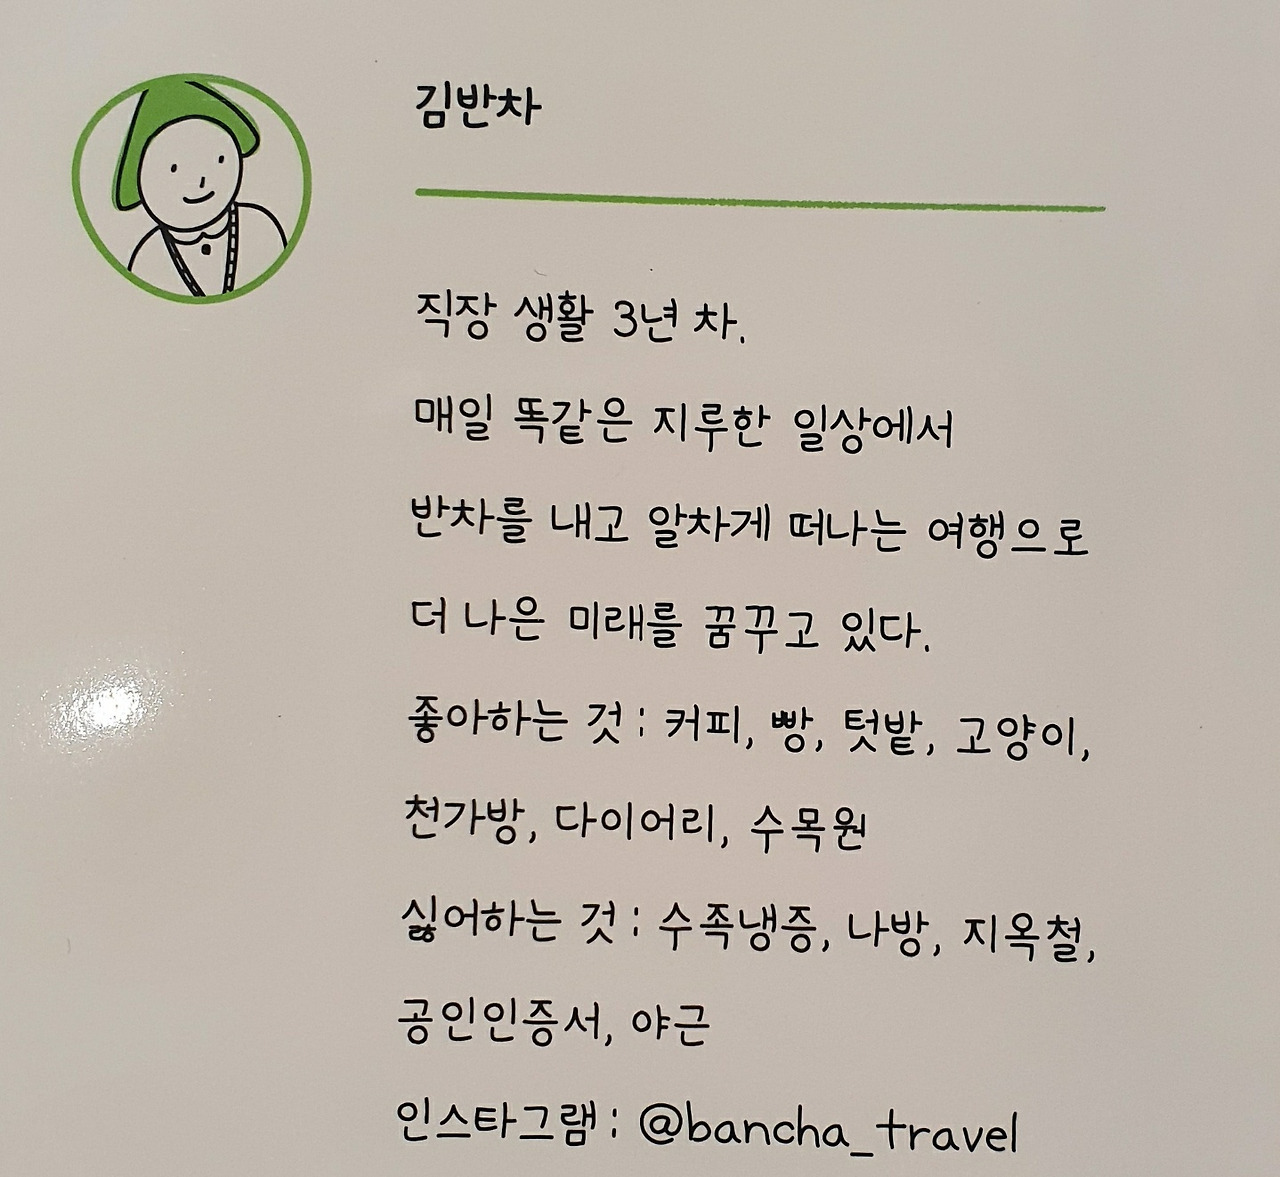 김반차
직장 생활 3년 차.
매일 똑같은 지루한 일상에서
반차를 내고 알차게 떠나는 여행으로
더 나은 미래를 꿈꾸고 있다.
좋아하는 것 : 커피, 빵, 텃밭, 고양이,
천가방, 다이어리, 수목원
싫어하는 것 : 수족냉증, 나방, 지옥철,
공인인증서, 야근
인스타그램 : @bancha_travel